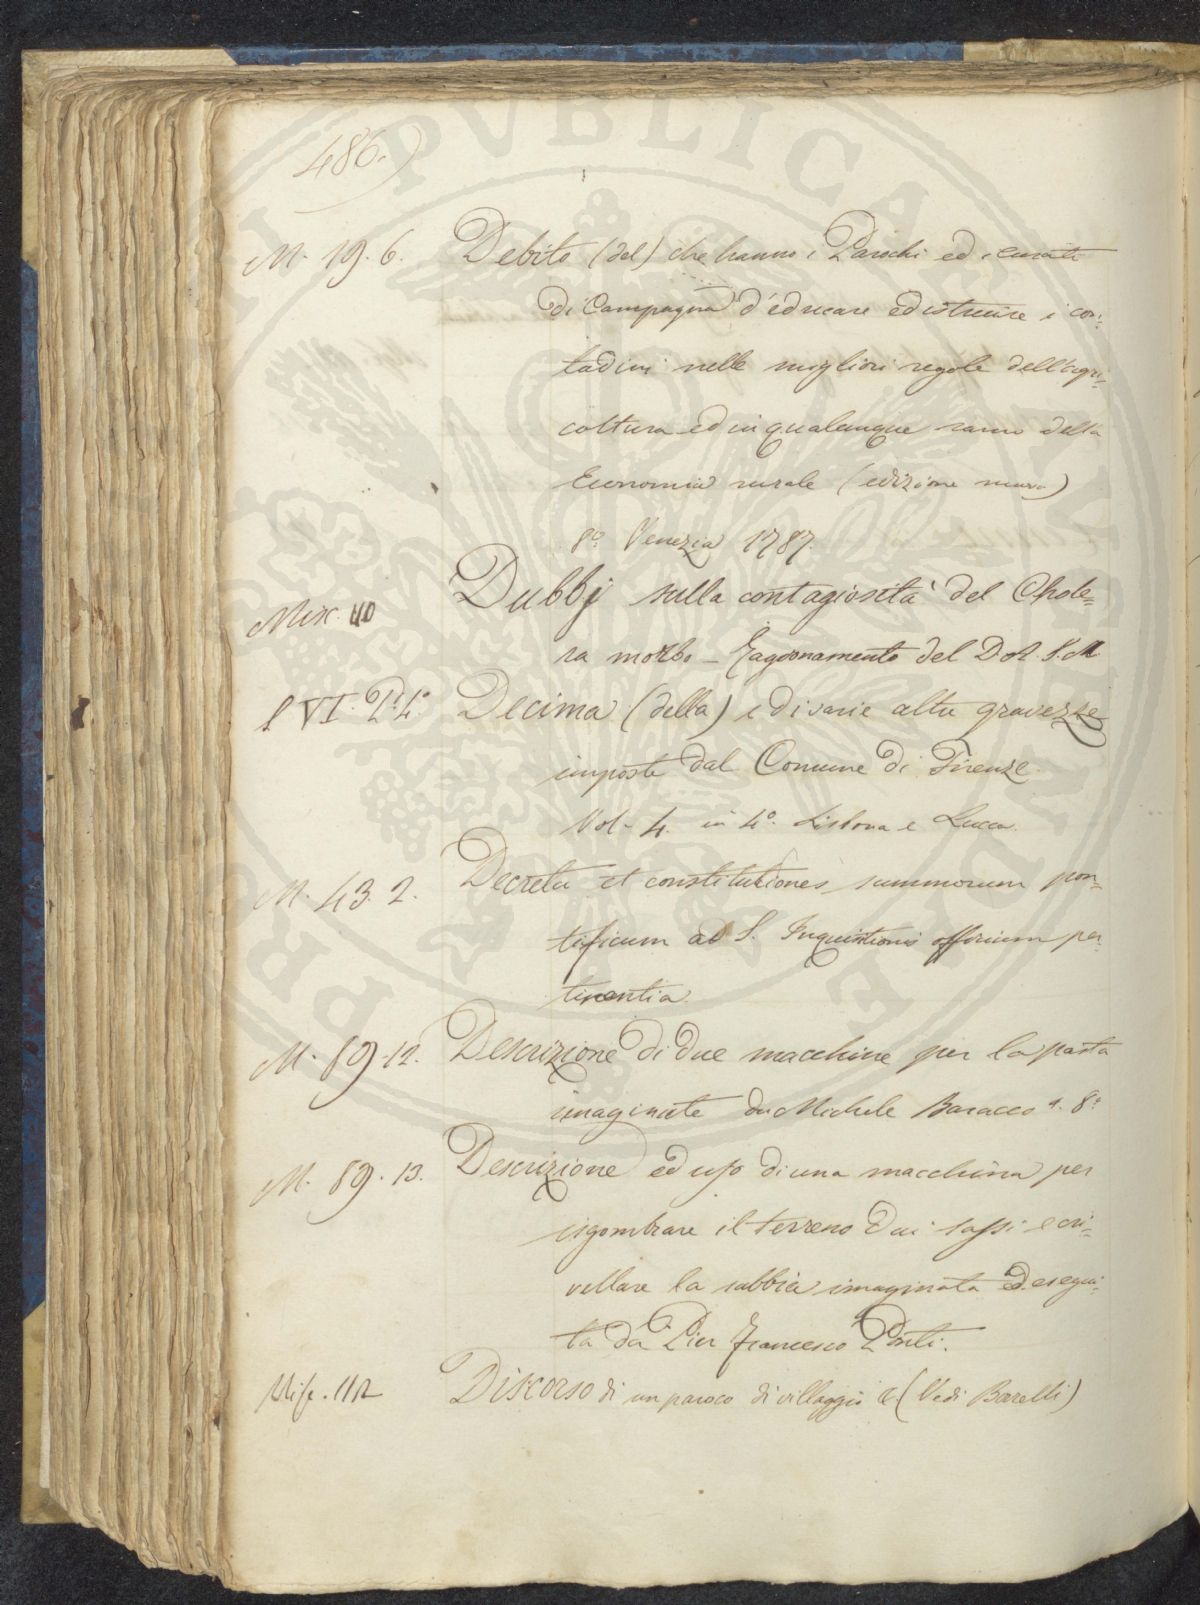 486.)
M. 19. 6. Debito (del) che hanno i Parochi ed i curati
di Campagna d'educare ed istruire i con=
tadini nelle migliori regole dell'agri=
coltura ed in qualunque ramo della
Economia rurale (edizione nuova)
8º Venezia 1787.
Misc. 40 Dubbj sulla contagiosità del Chole=
ra morbo _ Ragionamento del Dot. S. M
VI. Decima (della) e di varie altre gravezze
imposte dal Comune di Firenze
Vol. 4. in 4º. Lisbona e Lucca.
M. 43. 2. Decreta et constitutiones summorum pon=
tificum ad S. Inquisitionis officium per=
tinentia
M. 89. 12. Descrizione di due macchine per la pasta
imaginate da Michele Baracco 8º
M. 89. 13. Descrizione ed uso di una macchina per
isgombrare il terreno dai sassi e cri=
vellare la sabbia imaginata ed esegui=
ta da Pier Francesco Ponti.
Misc. 112 Discorso di un paroco di villaggio &(Vedi Barelli)